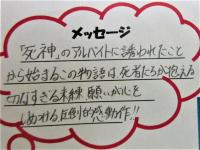 メッセージ
「死神」のアルバイトに誘われたこと
から始まるこの物語は死者たちが抱える
切なすぎる未練、願い、が心を
しめつける圧倒的感動作!!